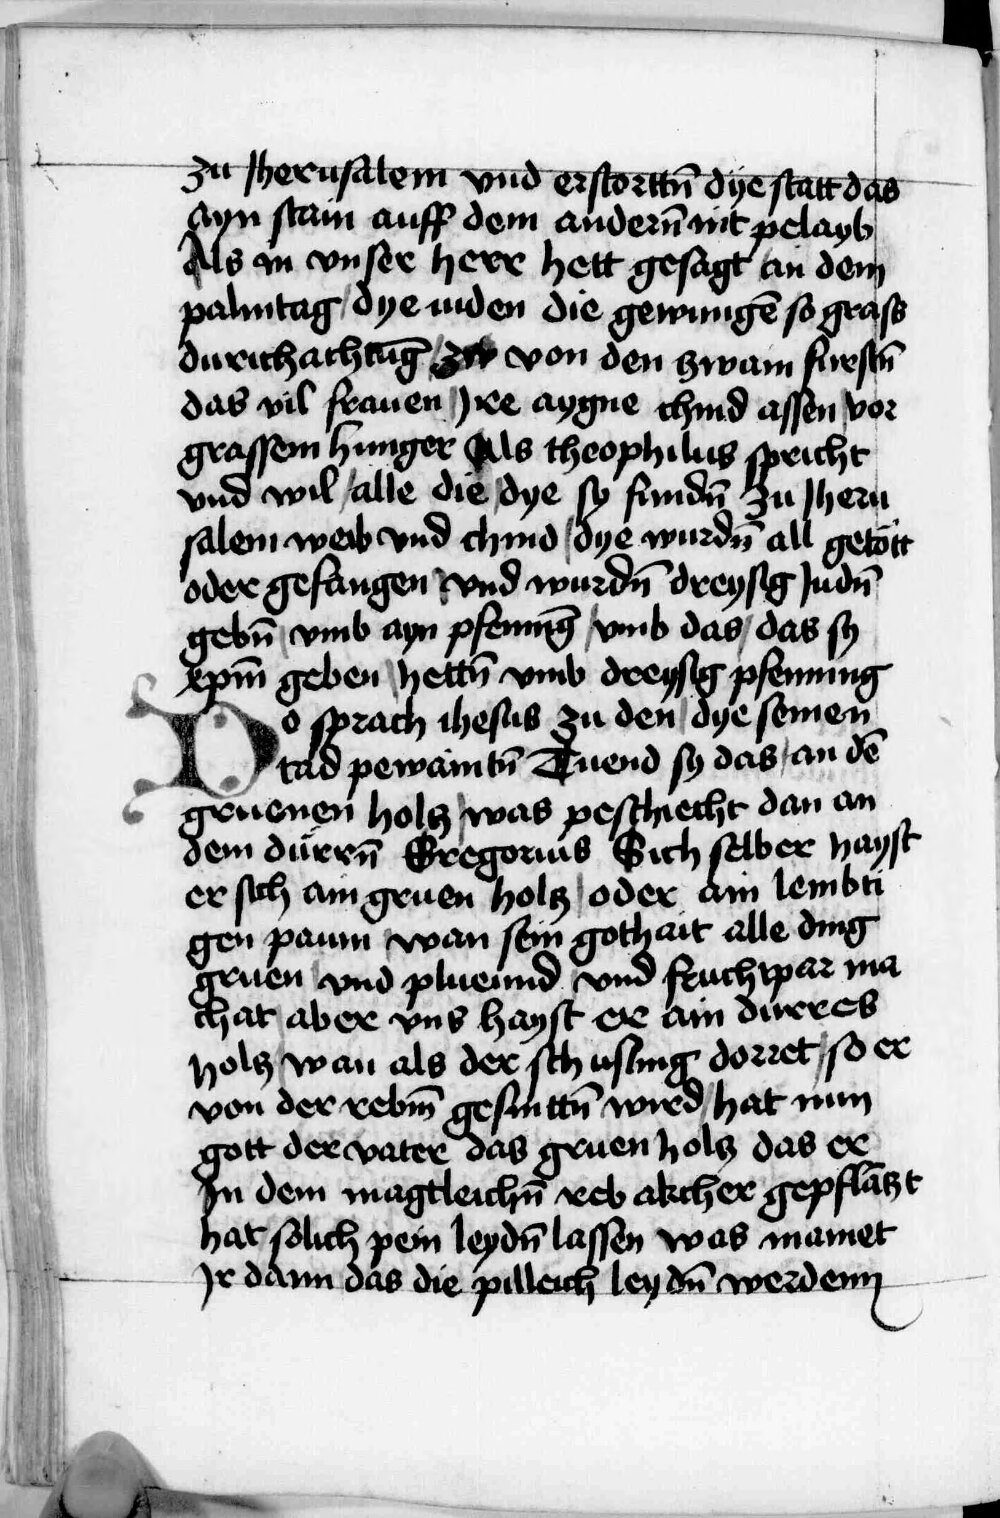 zu Jherusalem vnd erstorttn̄ dye statt das
ayn stain auff dem andern̄ nit pelayb
Als in vnser herr hett gesagt an dem
palmtag / dye iuden die gewungē so grass
durichachtūg von den zwain furstn̄
das vil frauen Jre aygne chind assen vor
grassem hunger Als theophilus spricht
vnd wil / alle die / dye sy fundn̄ zu Jheru
salem weib vnd chind / dye wurdn̄ all getött
oder gefangen vnd wurdn̄ dreysig Judn̄
gebn̄ / vmb ayn pfennīg / vmb das / das sy
xpm̄ geben / hettn̄ vmb dreysig pfenning
Do sprach ihesus zu den / dye seinen
tad pewaintn̄ Tuend sy das / an dē
gruenen holtz / was peschiecht dan an
dem dürrn̄ Gregorius Sich selber hayst
er sich ain gruen holtz / oder ain lembti
gen paum / wan sein gothait alle ding
gruen / vnd plueund vnd fruchtpar ma
chat / aber vns hayst er ain durres
holtz / wan als der schusling dorret / so er
von der rebm̄ gesnittn̄ wird / hat nun
gott der vater das gruen holtz das er
Jn dem magtleichn̄ reb akcher gepflātzt
hat solich pein leydn̄ lassen was mainet
Jr dann das die pilleich leydn̄ werdenn